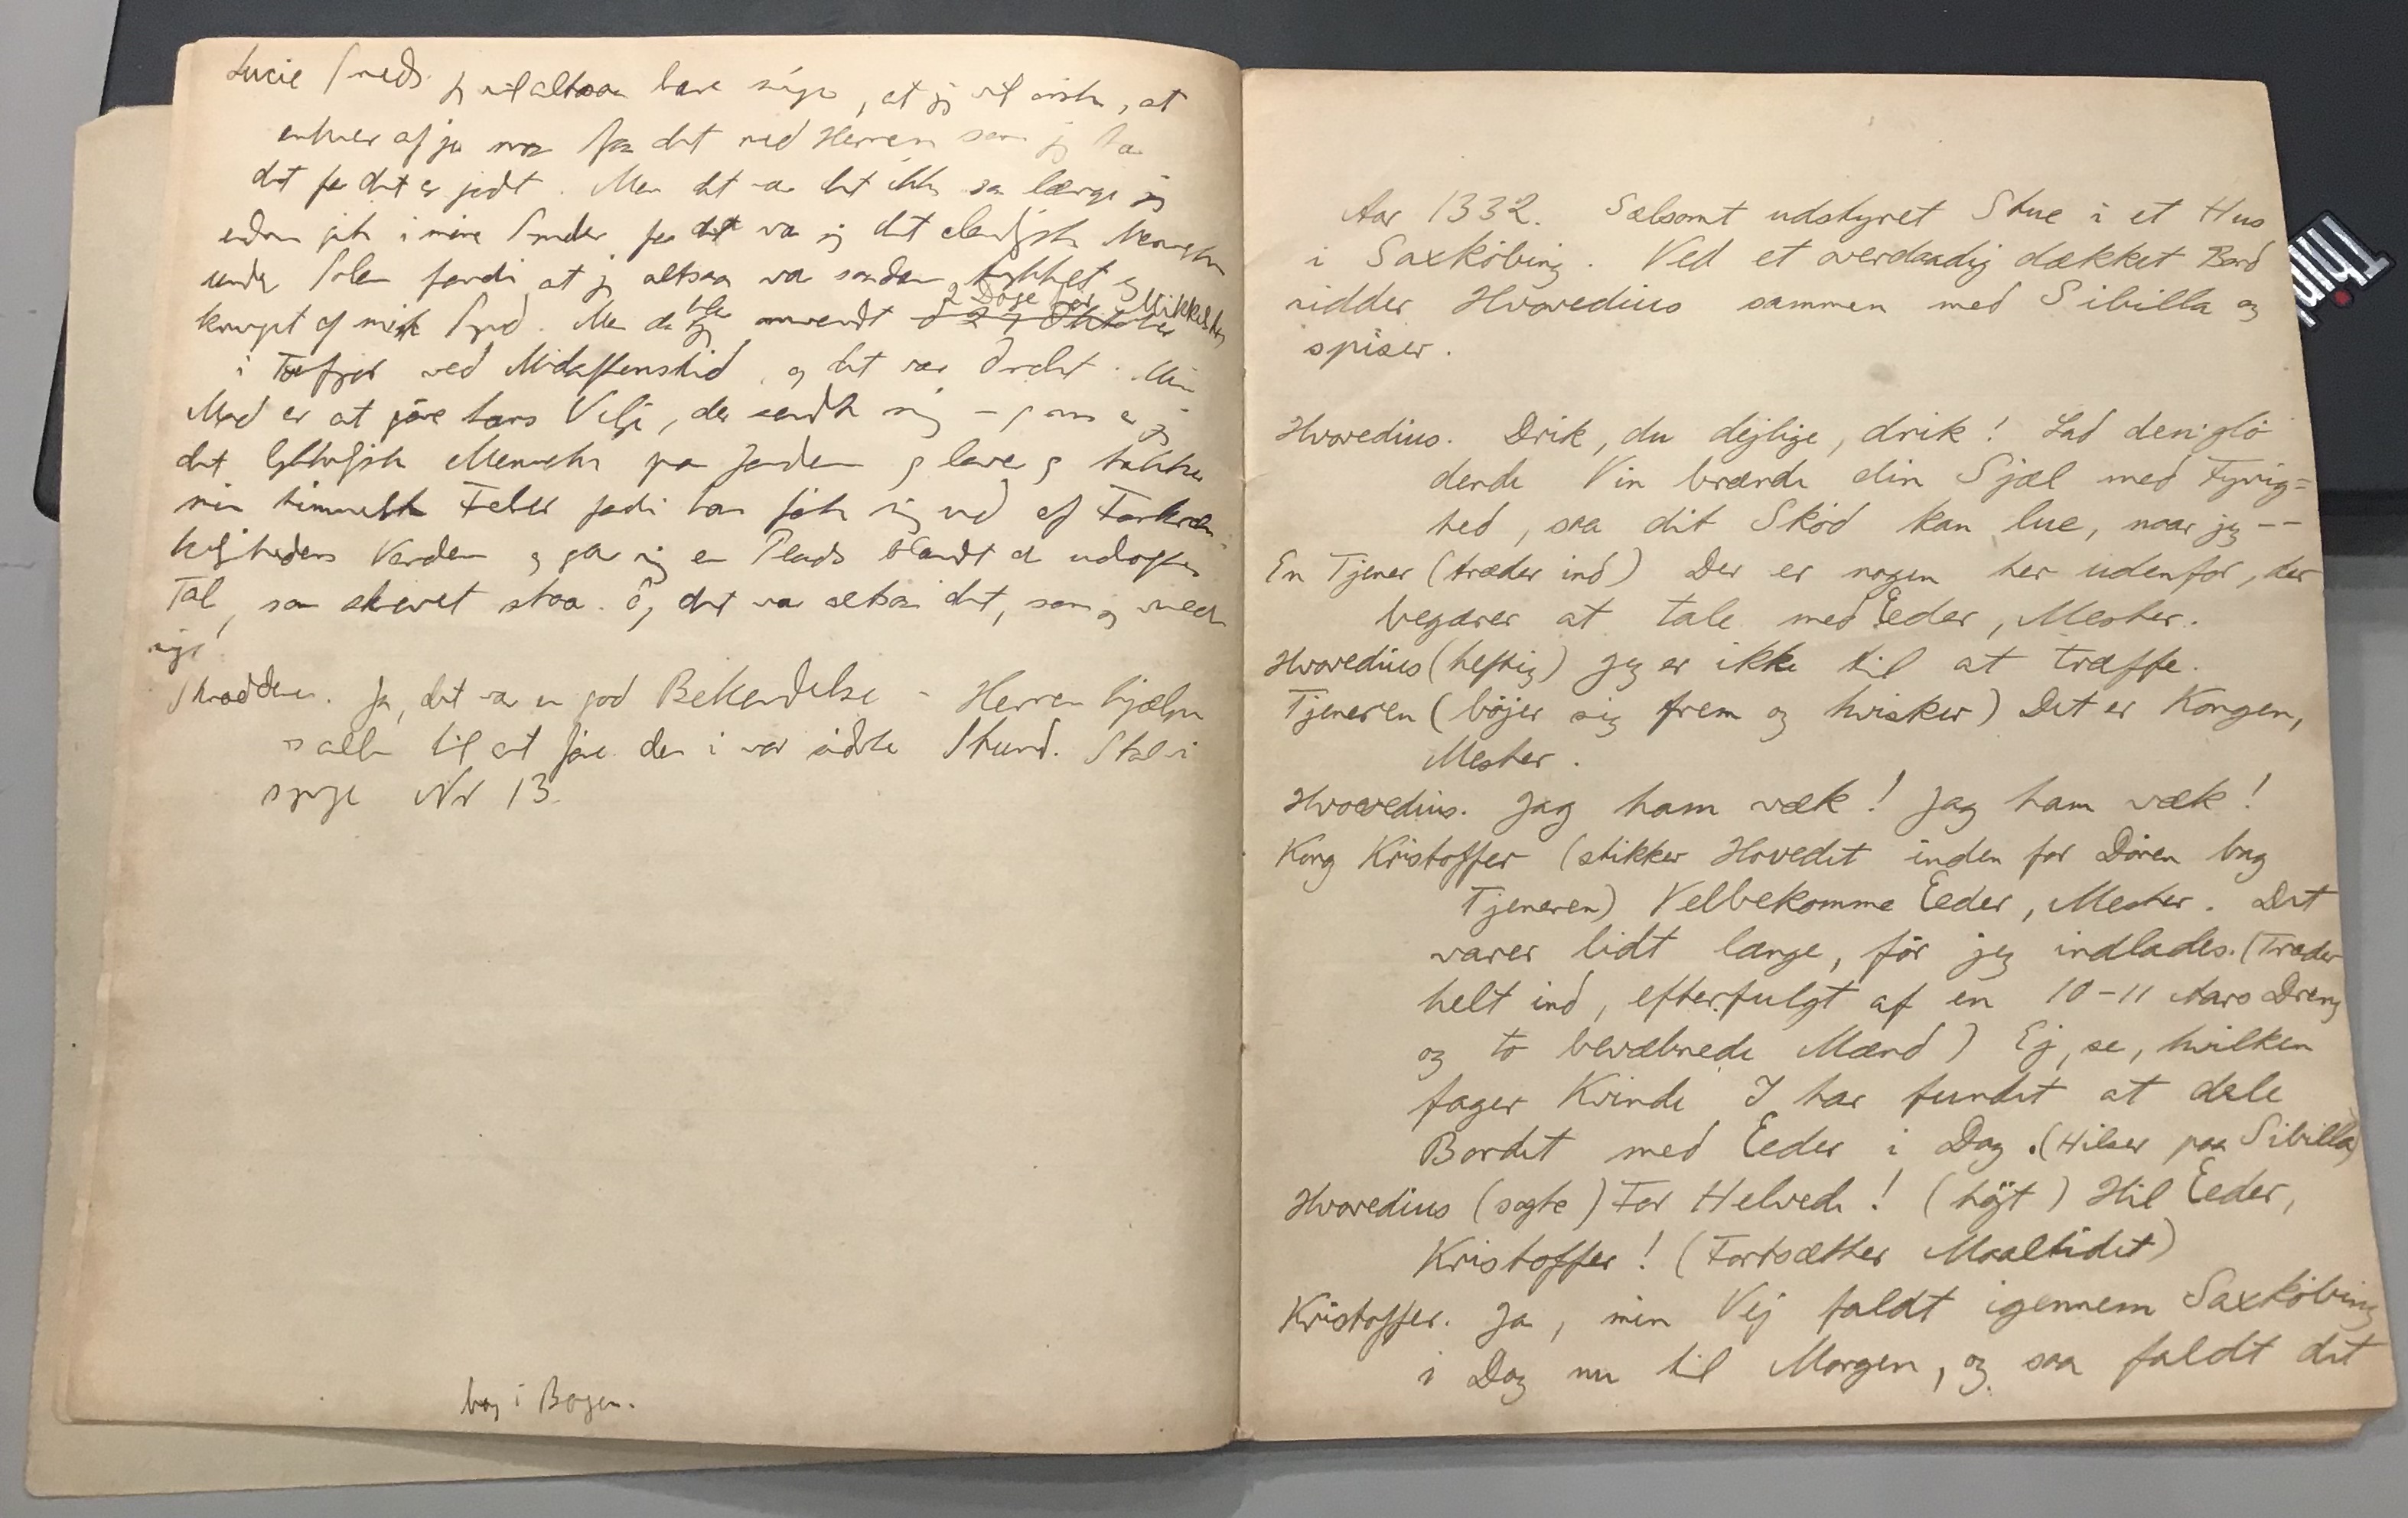 Lucie Smeds. Jeg vil altsaa bare sige, at jeg vil önske, at
enhver af jer maa faa det med Herren som jeg har
det for det er godt. Men det var det ikke saa længe jeg
endnu gik i mine Synder for da var jeg det elendigste Menneske
under Solen fordi at jeg altsaa var saadan trykket og
knuget af min Synd. Men da blev jeg omvendt d 27 Oktober 2 Dage før Mikkelsdag
i ved Midaftenstid, og det var dejligt. Min
Mad er at göre hans Vilje, der sendte mig – og nu er jeg
det lykkeligste Menneske paa Jorden og lover og takker
min himmelske Fader fordi han friede mig ud af Forkræn-
kelighedens Verden og gav mig en Plads blandt de udvalgtes
Tal, som skrevet staa. Og det var altsaa det, som jeg vilde
sige!
Skrædderen. Ja, det var en god Bekendelse – Herren hjælpe
os alle til at gøre den i vor sidste Stund. Skal vi
synge Nr 13.
bag i Bogen.
Aar 1332. Sælsomt udstyret Stue i et Hus
i Saxköbing. Ved et overdaadig dækket Bord
sidder Hvoredius sammen med Sibilla og
spiser.
Hvoredius. Drik, du dejlige, drik! Lad den glö
dende Vin brænde din Sjæl med Fyrig=
hed, saa dit Sköd kan lue, naar jeg --
En Tjener (træder ind) Der er nogen her udenfor, der
begærer at tale med Eeder, Mester.
Hvoredius (heftig) Jeg er ikke til at træffe.
Tjeneren (böjer sig frem og hvisker) Det er Kongen,
Mester.
Hvoredius. Jag ham væk! Jag ham væk!
Kong Kristoffer (stikker Hovedet inden for Dören bag
Tjeneren) Velbekomme Eeder, Mester. Det
varer lidt længe, för jeg indlades. (Træder
helt ind, efterfulgt af en 10-11 Aars Dreng
og to bevæbnede Mænd) Ej, se, hvilken
fager Kvinde I har fundet at dele
Bordet med Eeder i Dag. (Hilser paa Sibilla)
Hvoredius (sagte) For Helvede! (höjt) Hil Eeder,
Kristoffer! (Fortsætter Maaltidet)
Kristoffer. Ja, min Vej faldt igennem Saxköbing
i Dag nu til Morgen, og saa faldt det
Think